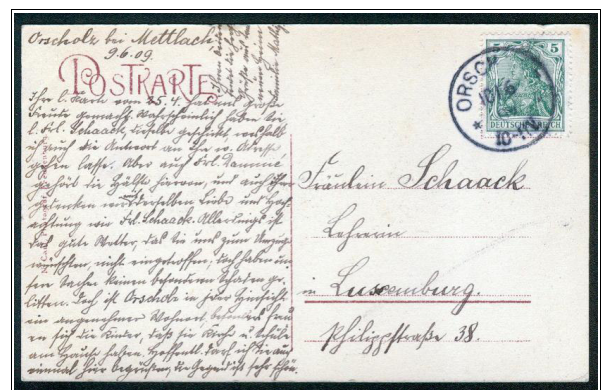 Orscholz bei Mettlach,
9.6.09.
POSTKARTE
Ihr l. Karte vom 25.4. hat uns große
Freude gemacht. Wahrscheinlich haben Sie
l. Frl. Schaack, dieselbe geschickt, weshalb
ich auch die Antwort an Ihre w. Adresse
gehen lasse. Aber auch Frl.
gehört die Hälfte hiervon, und auch ihr
gedenken wir derselben Liebe und Hoch
achtung wie Frl. Schaack. Allerdings ist
das gute Wetter, das Sie uns zum Umzug
wünschten, nicht eingetroffen, doch haben un
sere Sachen keinen besondern Schaden ge
litten. Doch ist Orscholz in jeder Hinsicht
ein angenehmer Wohnort, besonders freu
en sich die Kinder, daß sie Kirch u. Schule
am Hause haben. Hoffentl. darf ich Sie auch
einmal hier begrüßen, die Gegend ist sehr schön.
5 5
DEUTSCHES REICH
ORSCH
10-11V
Fräulein Schaack
Lehrerin
in Luxemburg.
Philippstraße 38.